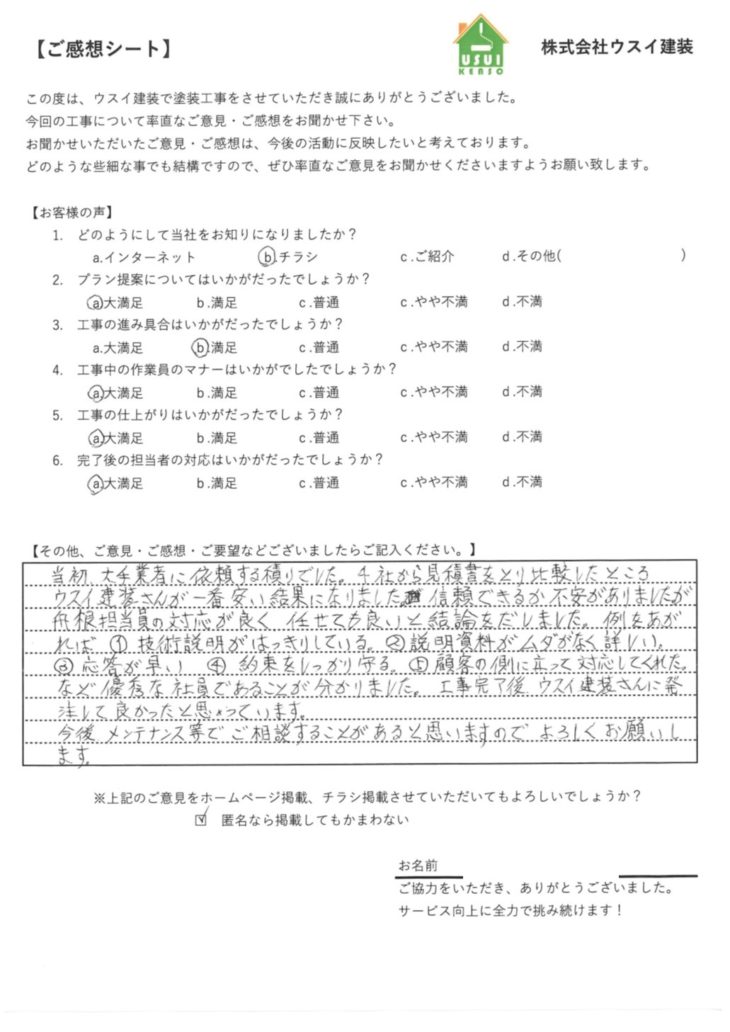 【ご感想シート】
USUI
KENSO
株式会社ウスイ建装
この度は、ウスイ建装で塗装工事をさせていただき誠にありがとうございました。
今回の工事について率直なご意見・ご感想をお聞かせ下さい。
お聞かせいただいたご意見・ご感想は、今後の活動に反映したいと考えております。
どのような些細な事でも結構ですので、ぜひ率直なご意見をお聞かせくださいますようお願い致します。
【お客様の声】
1. どのようにして当社をお知りになりましたか？
a.インターネット b.チラシ c.ご紹介 d.その他( )
2. プラン提案についてはいかがだったでしょうか？
a.大満足 b.満足 c.普通 c.やや不満 d.不満
3. 工事の進み具合はいかがだったでしょうか？
a.大満足 b.満足 c.普通 c.やや不満 d.不満
4. 工事中の作業員のマナーはいかがでしたでしょうか？
a.大満足 b.満足 c.普通 c.やや不満 d.不満
5. 工事の仕上がりはいかがだったでしょうか？
a.大満足 b.満足 c.普通 c.やや不満 d.不満
6. 完了後の担当者の対応はいかがだったでしょうか？
a.大満足 b.満足 c.普通 c.やや不満 d.不満
【その他、ご意見・ご感想・ご要望などございましたらご記入ください。】
当初、大手業者に依頼する積りでした。4社から見積書をとり比較したところ
ウスイ建装さんが一番安い結果になりました 信頼できるか不安がありましたが
舟根担当員の対応が良く 任せて方良いと結論をだしました。例をあが
れば ① 技術説明がはっきりしている。② 説明資料がムダがなく詳しい。
③ 応答が早い ④ 約束をしっかり守る。⑤ 顧客の側に立って対応してくれた。
など優為な社員であることが分かりました。工事完了後、ウスイ建装さんに発
注して良かったと思っています。
今後メンテナンス等でご相談することがあると思いますのでよろしくお願いし
ます。
※上記のご意見をホームページ掲載、チラシ掲載させていただいてもよろしいでしょうか？
☑ 匿名なら掲載してもかまわない
お名前
ご協力をいただき、ありがとうございました。
サービス向上に全力で挑み続けます！